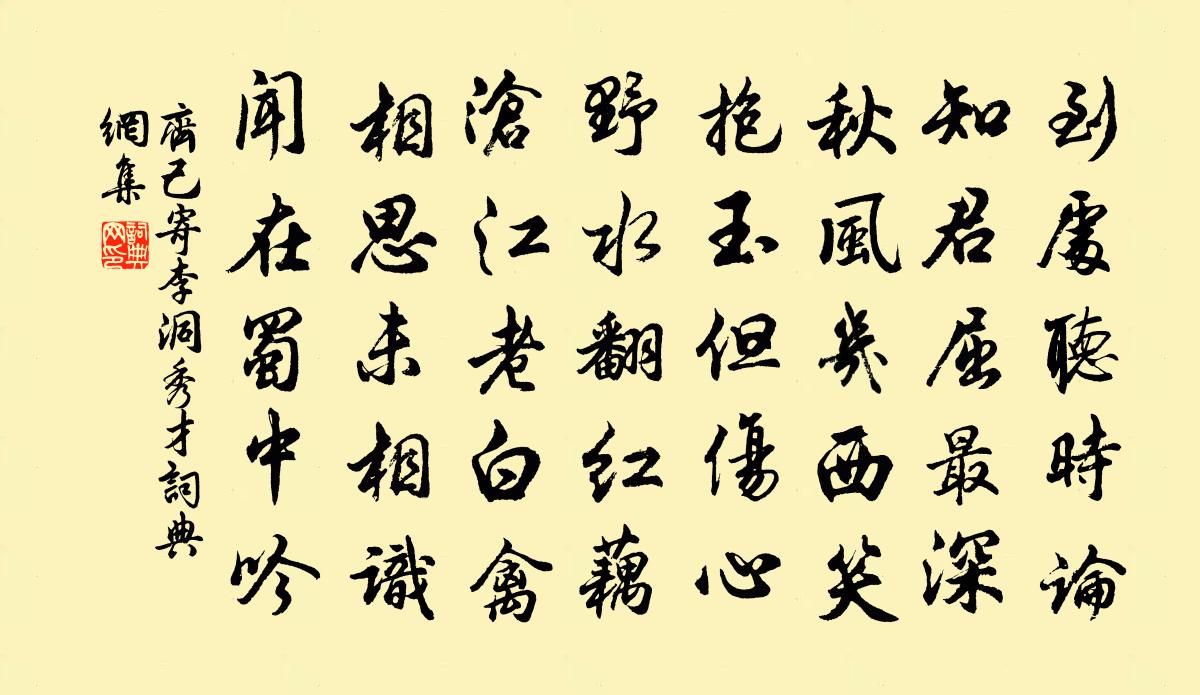 到處聽時論
知君屈最深
秋風幾西笑
抱玉但傷心
野水翻紅藕
滄江老白禽
相思未相識
聞在蜀中吟
齊己寄李洞秀才詞典
網集
詞典网印